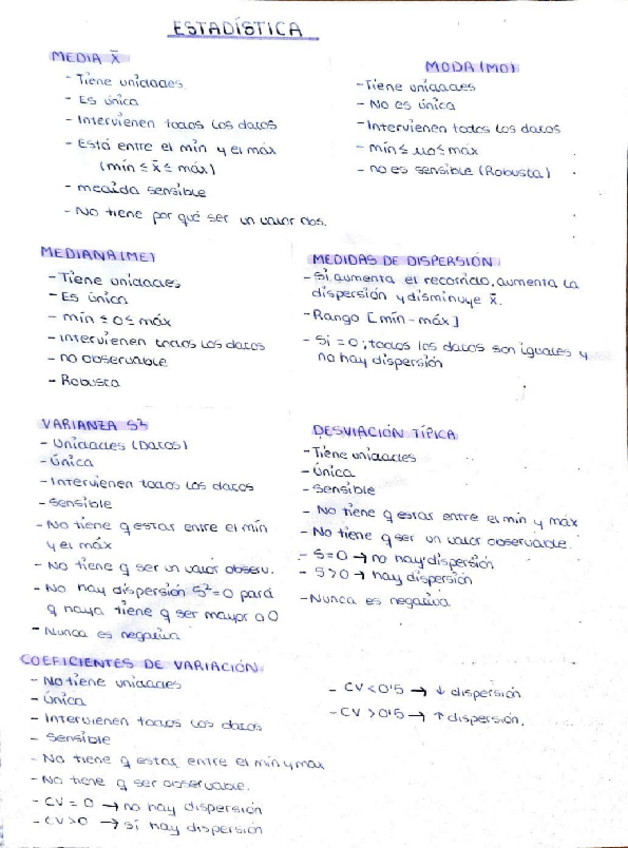 ESTADÍSTICA
MEDIA X̄
- Tiene unidades.
- Es única
- Intervienen todos los datos
- Está entre el mín y el máx
(mín ≤ x̄ ≤ máx)
- medida sensible
- No tiene por qué ser un valor obs.
MODA (MO)
- Tiene unidades
- No es única
- Intervienen todos los datos
- mín ≤ MO ≤ máx
- no es sensible (Robusta)
MEDIANA (ME)
- Tiene unidades
- Es única
- mín ≤ 0 ≤ máx
- Intervienen todos los datos
- no observable
- Robusta
MEDIDAS DE DISPERSIÓN
- Si aumenta el recorrido, aumenta la
dispersión y disminuye x̄.
- Rango [mín - máx]
- Si = 0; todos los datos son iguales y
no hay dispersión
VARIANZA S²
- Unidades (Datos)
- Única
- Intervienen todos los datos
- Sensible
- No tiene q estar entre el mín
y el máx
- No tiene q ser un valor observ.
- No hay dispersión S²=0 para
q haya tiene q ser mayor a 0
- Nunca es negativa
DESVIACIÓN TÍPICA
- Tiene unidades
- Única
- Sensible
- No tiene q estar entre el mín y máx
- No tiene q ser un valor observable.
- S=0 → no hay dispersión
- S>0 → hay dispersión
- Nunca es negativa
COEFICIENTES DE VARIACIÓN
- No tiene unidades
- Única
- Intervienen todos los datos
- Sensible
- No tiene q estar entre el mín y máx
- No tiene q ser observable.
- CV = 0 → no hay dispersión
- CV>0 → sí hay dispersión
- CV<0'5 → ↓ dispersión
- CV>0'5 → ↑ dispersión.